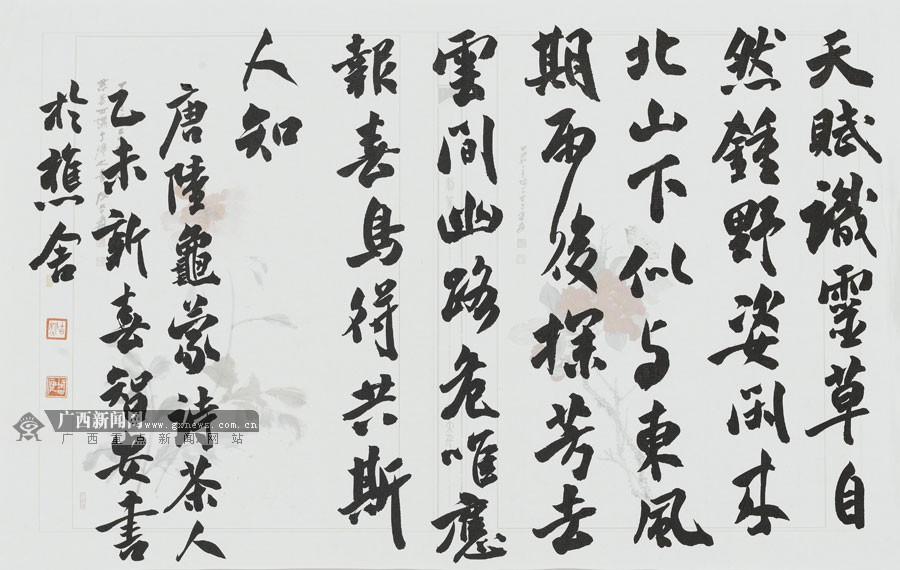 天賦識靈草自
然鍾野姿閑来
北山下似与東風
期雨後探芳去
雲間幽路危唯應
報春鳥得共斯
人知
唐陸龜蒙詩茶人
乙未新春智安书
於樵舍
广西新闻网
www.gxnews.com.cn
广西重点新闻网站